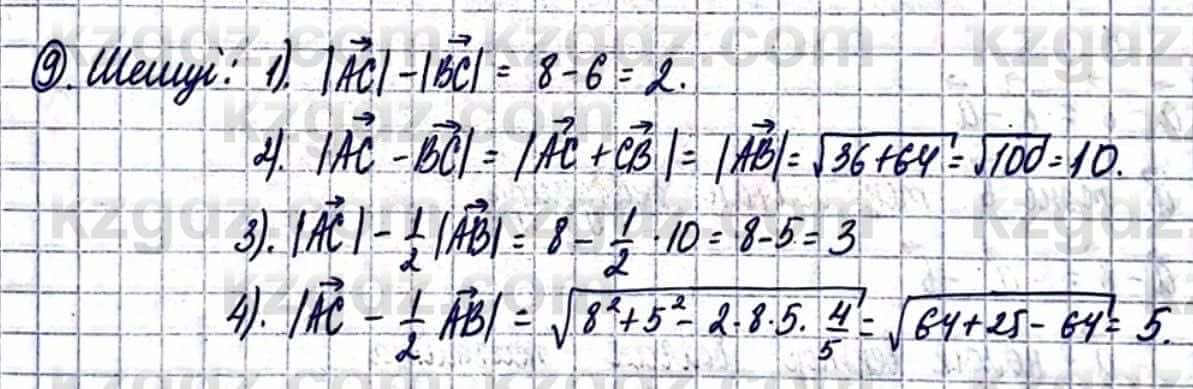 ⑨. Шешуі: 1). |A͞C⃗| − |BC⃗| = 8 − 6 = 2.
2). |AC⃗ − BC⃗| = |AC⃗ + CB⃗| = |AB⃗| = √(36+64) = √100 = 10.
3). |AC⃗| − 1/2 |AB⃗| = 8 − 1/2 · 10 = 8 − 5 = 3
4). |AC⃗ − 1/2 AB⃗| = √(8² + 5² − 2·8·5· 4/5) = √(64 + 25 − 64) = 5.